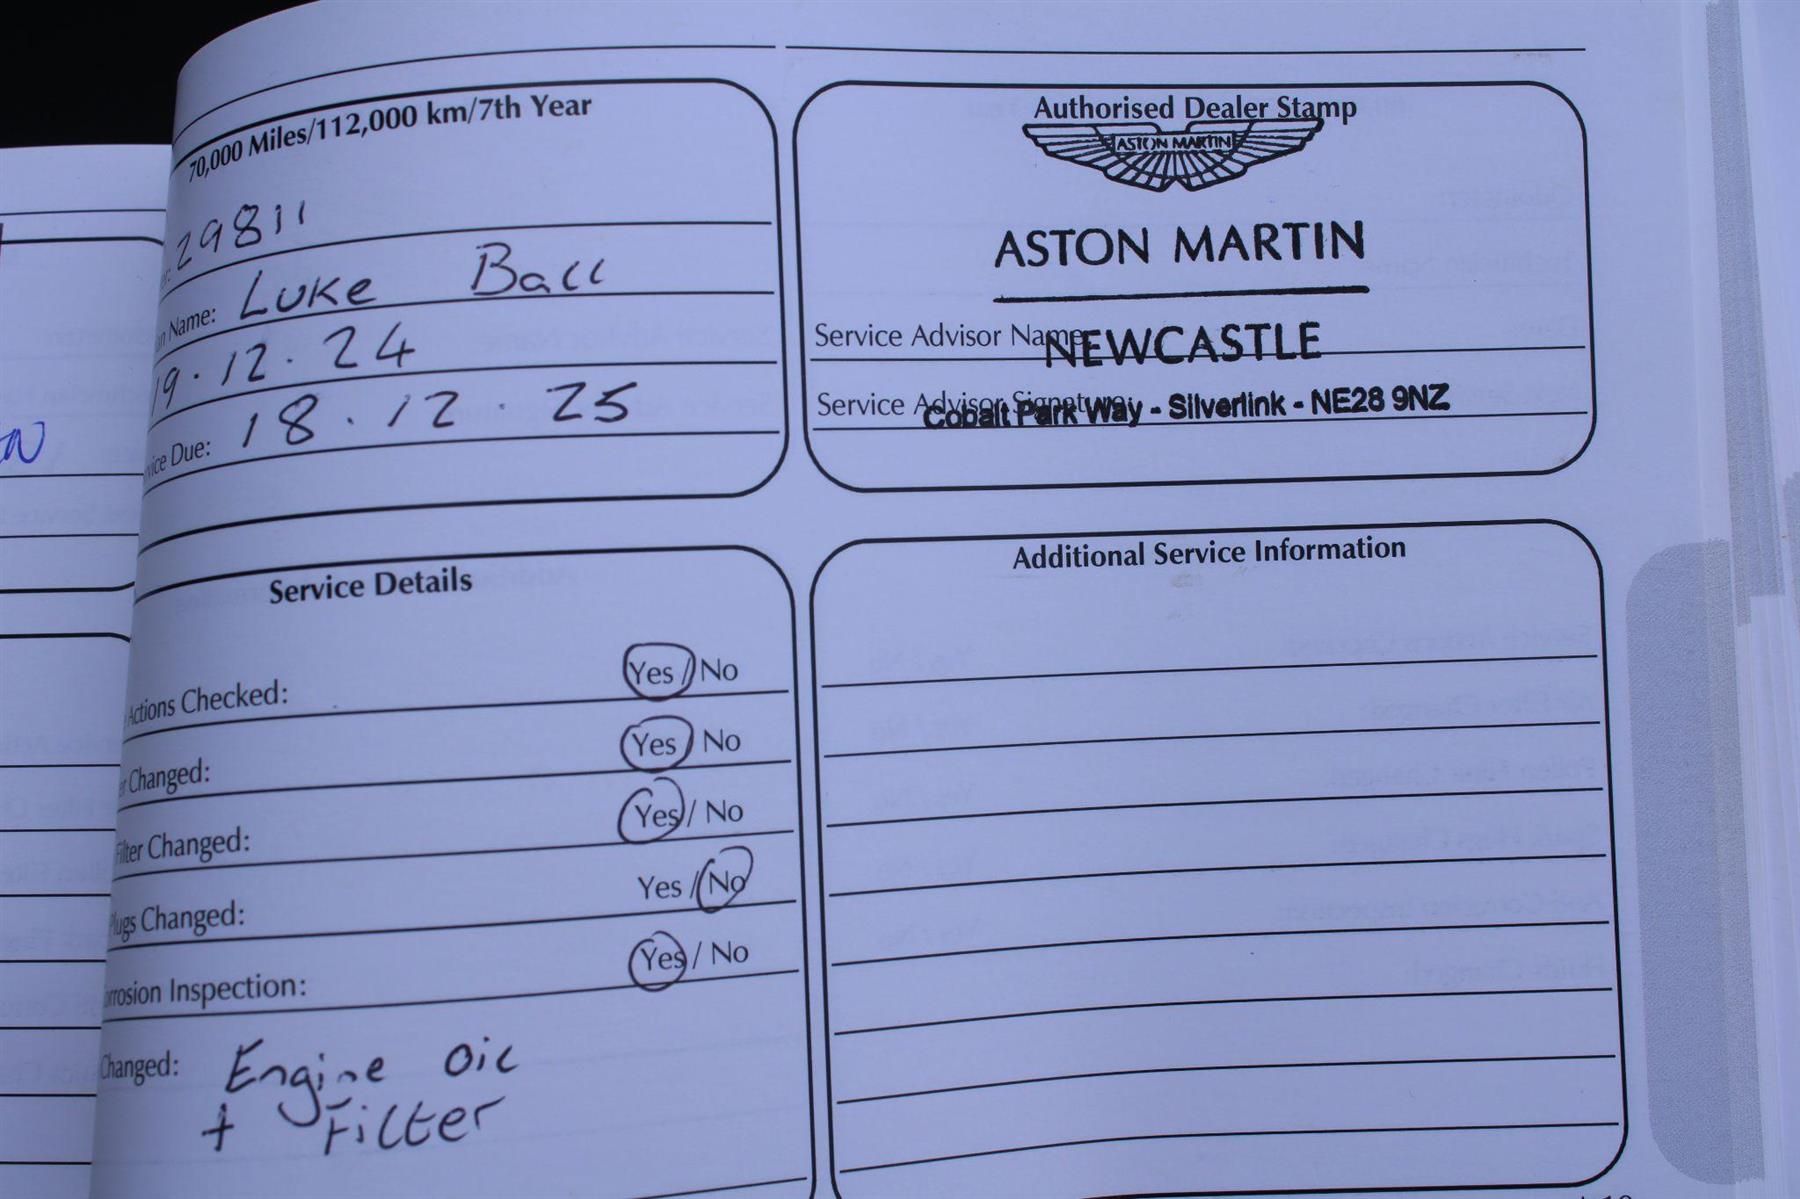 70,000 Miles/112,000 km/7th Year
29811
Name: Luke Ball
19.12.24
Due: 18.12.25
Authorised Dealer Stamp
ASTON MARTIN
ASTON MARTIN
Service Advisor Name:
NEWCASTLE
Service Advisor Signature:
Cobalt Park Way - Silverlink - NE28 9NZ
Service Details
Actions Checked: Yes / No
Changed: Yes / No
Filter Changed: Yes / No
Plugs Changed: Yes / No
rrosion Inspection: Yes / No
Changed: Engine Oil
+ Filter
Additional Service Information